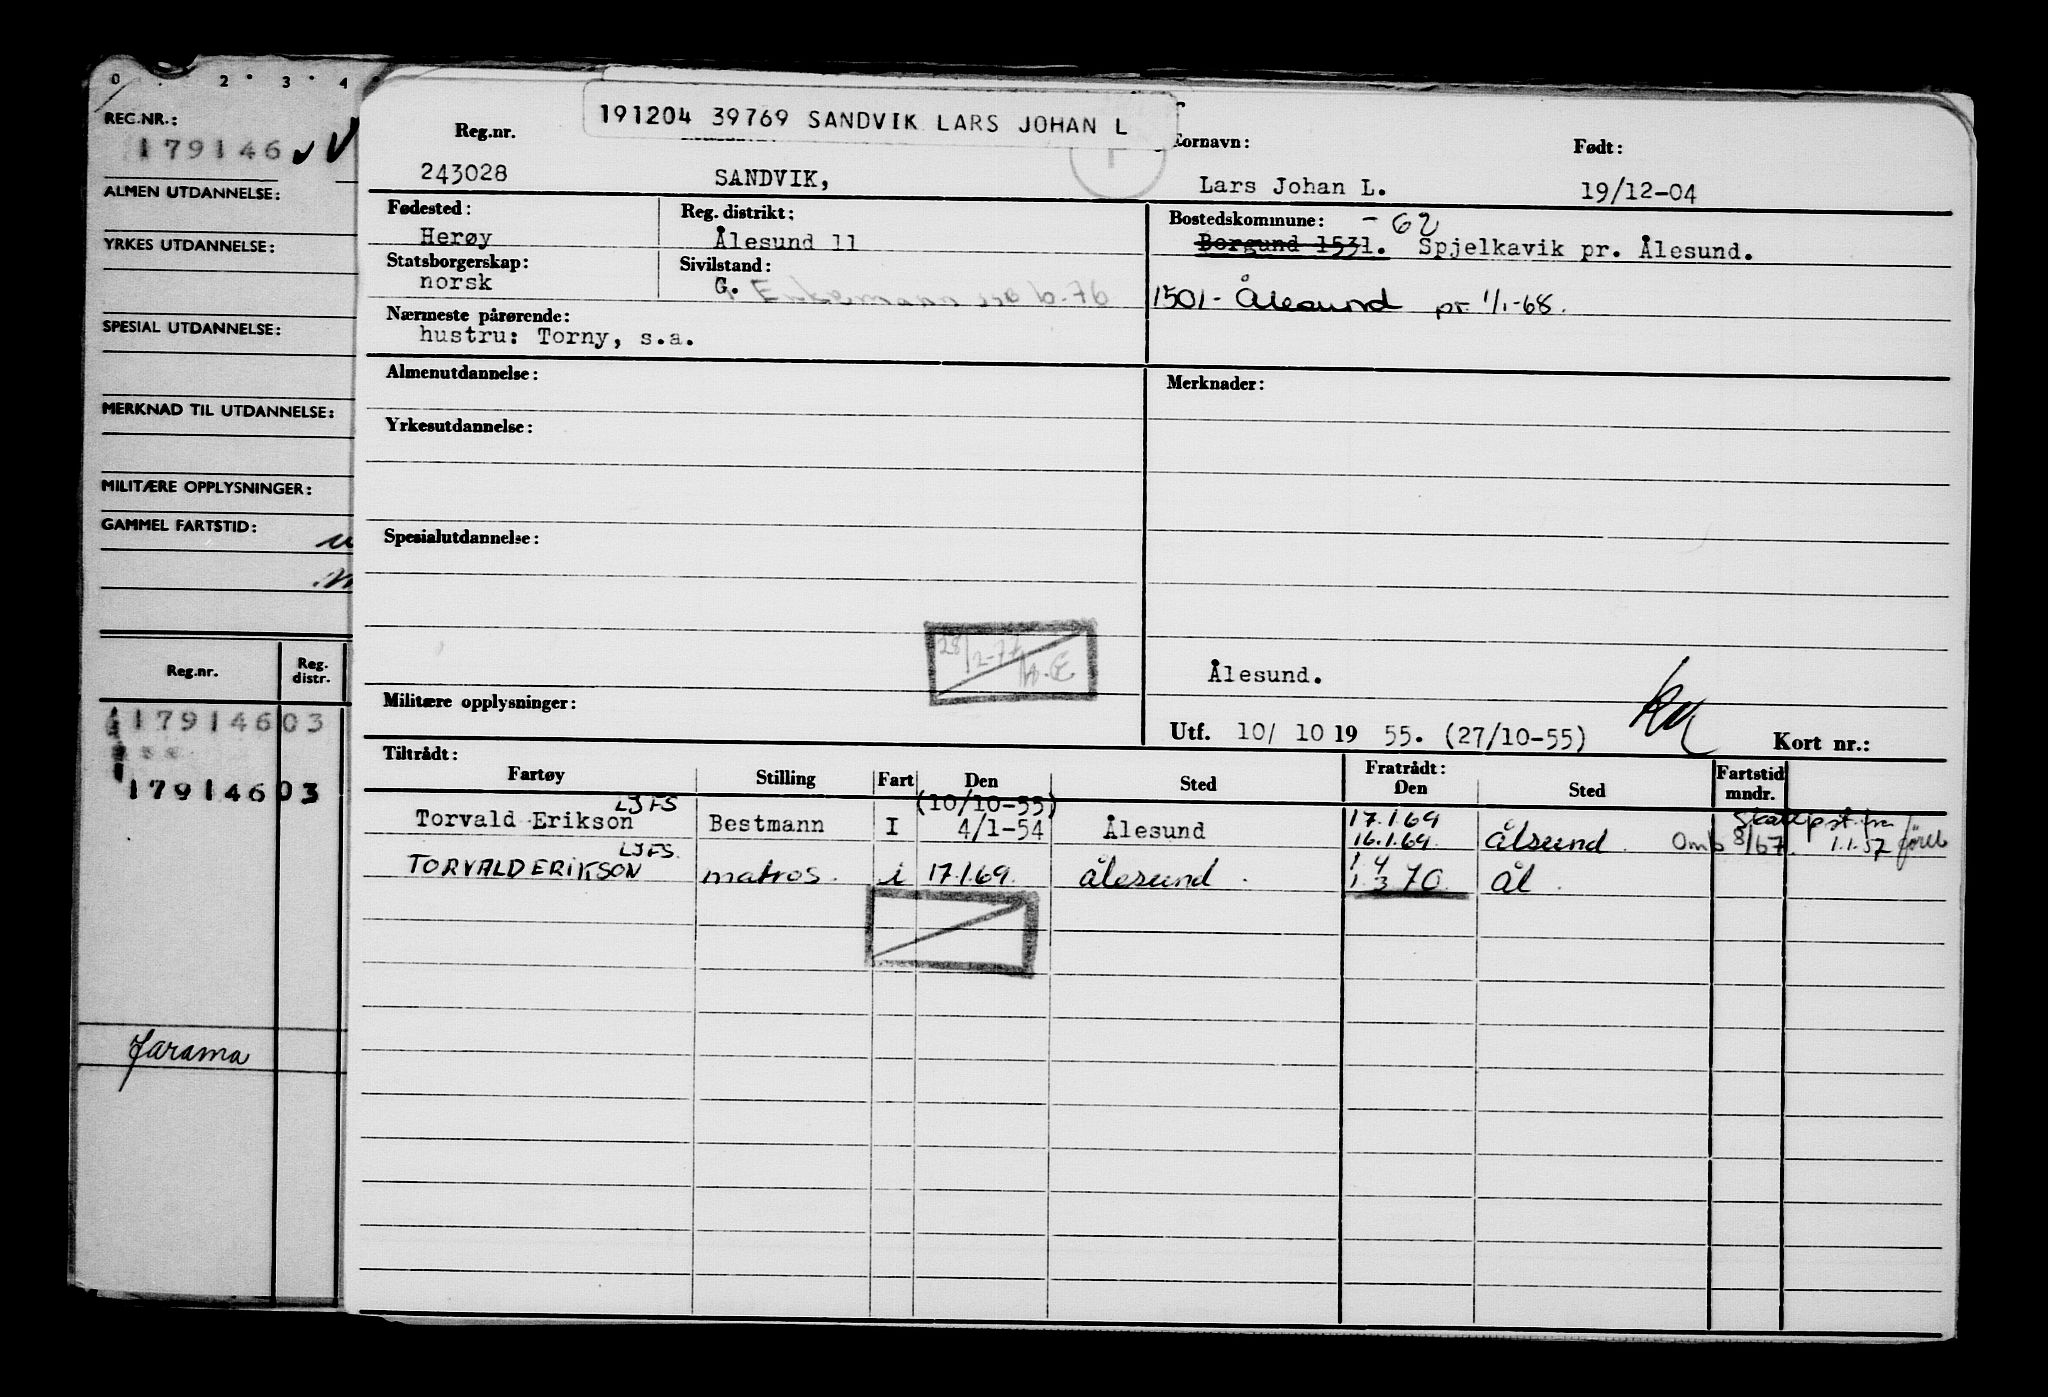 0 . 2 . 3 . 4
REG.NR.:
179146
ALMEN UTDANNELSE:
YRKES UTDANNELSE:
SPESIAL UTDANNELSE:
MERKNAD TIL UTDANNELSE:
MILITÆRE OPPLYSNINGER:
GAMMEL FARTSTID:
Reg.nr. Reg. distr.
179146 03
179146 03
Jarama
191204 39769 SANDVIK LARS JOHAN L
Reg.nr. Fornavn: Født:
243028 SANDVIK, Lars Johan L. 19/12-04
Fødested: Reg. distrikt: Bostedskommune: -62
Herøy Ålesund 11 Borgund 1531. Spjelkavik pr. Ålesund.
Statsborgerskap: Sivilstand:
norsk G. Enkemann 76
1501- Ålesund pr. 1/1-68.
Nærmeste pårørende:
hustru: Torny, s.a.
Almenutdannelse: Merknader:
Yrkesutdannelse:
Spesialutdannelse:
28/2-77
Ålesund.
Militære opplysninger:
Utf. 10/ 10 19 55. (27/10-55) Kort nr.:
Tiltrådt: Fratrådt: Fartstid mndr.
Fartøy Stilling Fart Den Sted Den Sted
LJFS (10/10-55) 17.1.69
Torvald Erikson Bestmann I 4/1-54 Ålesund 16.1.69. Ålsund. Omb 8/67. 1.1.57
LJFS. 1 4
TORVALD ERIKSON matros. i 17.1.69. Ålesund. 1.3 70. Ål.